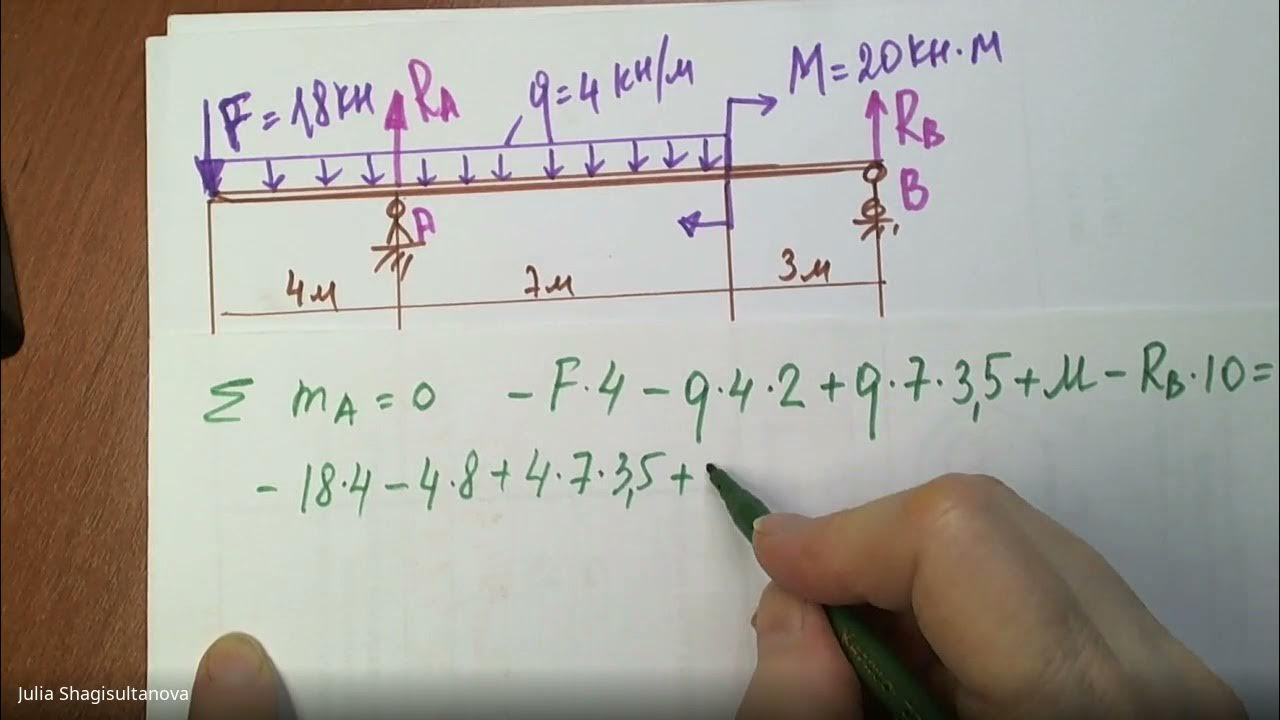 F = 18 кн
RA
q = 4 кн/м
M = 20 кн·м
RB
A
B
4м
7м
3м
Σ mA = 0 - F·4 - q·4·2 + q·7·3,5 + M - RB·10 =
- 18·4 - 4·8 + 4·7·3,5 +
Julia Shagisultanova